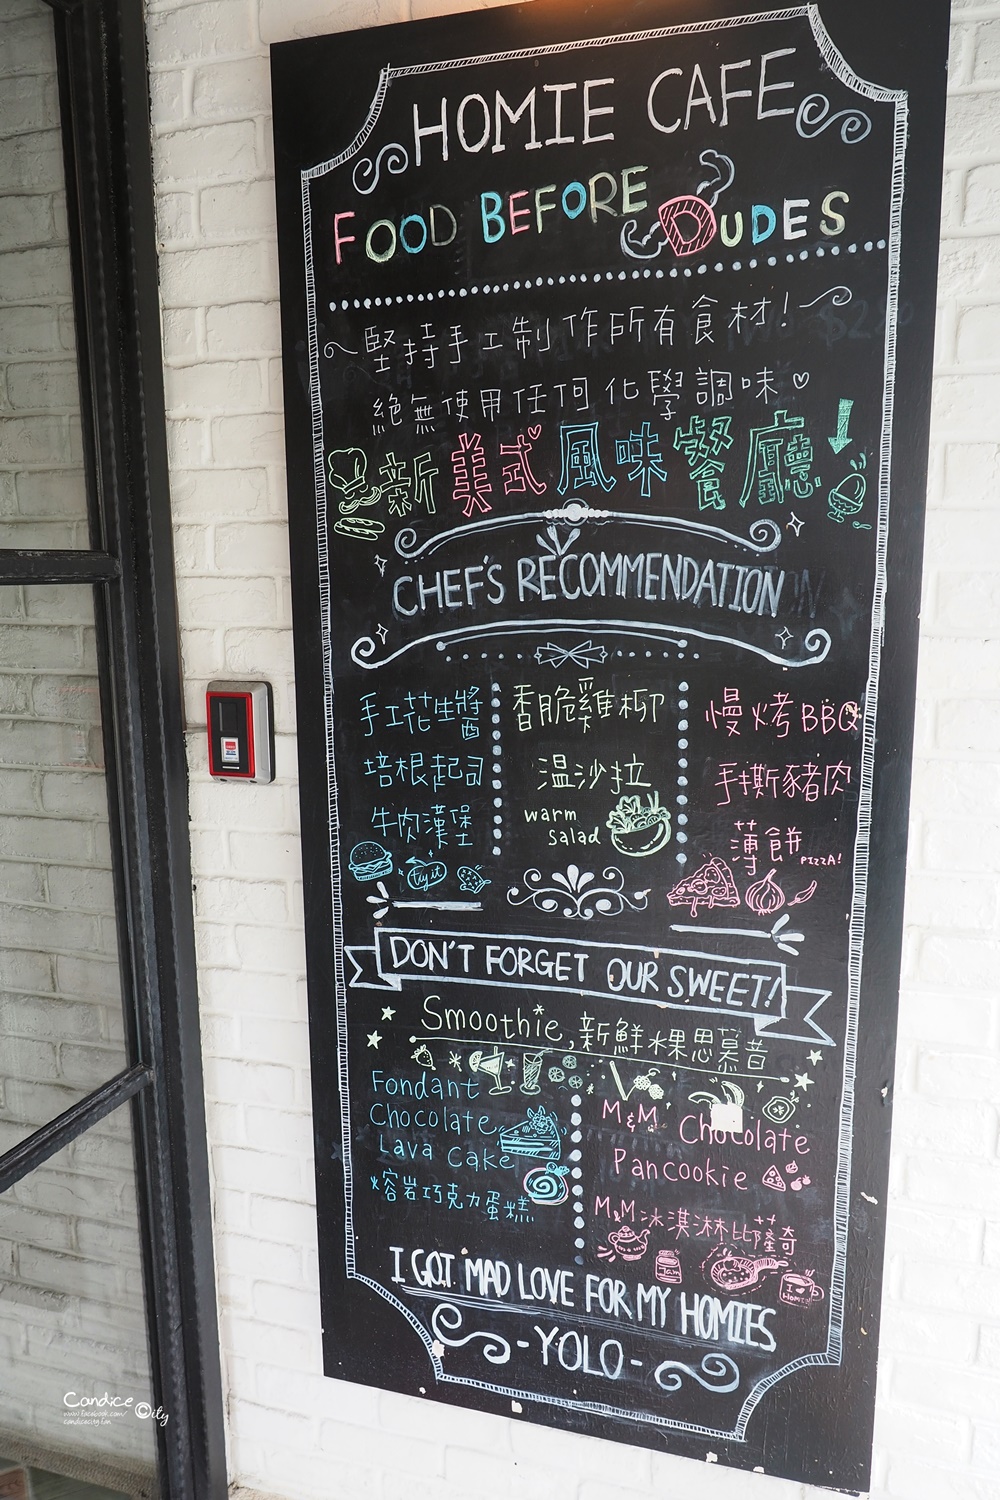 HOMIE CAFE
FOOD BEFORE DUDES
堅持手工制作所有食材!
絕無使用任何化學調味
新美式風味餐廳
CHEF'S RECOMMENDATION
手工花生醬
培根起司
牛肉漢堡
try it
香脆雞柳
温沙拉
warm
salad
慢烤BBQ
手撕豬肉
薄餅
PIZZA!
DON'T FORGET OUR SWEET!
Smoothie,新鮮水果思慕昔
Fondant
Chocolate
Lava Cake
熔岩巧克力蛋糕
M&M Chocolate
Pancookie
M&M冰淇淋比薩
Jam
I GOT MAD LOVE FOR MY HOMIES
-YOLO-
Candice City
www.facebook.com/
candicecity.fan